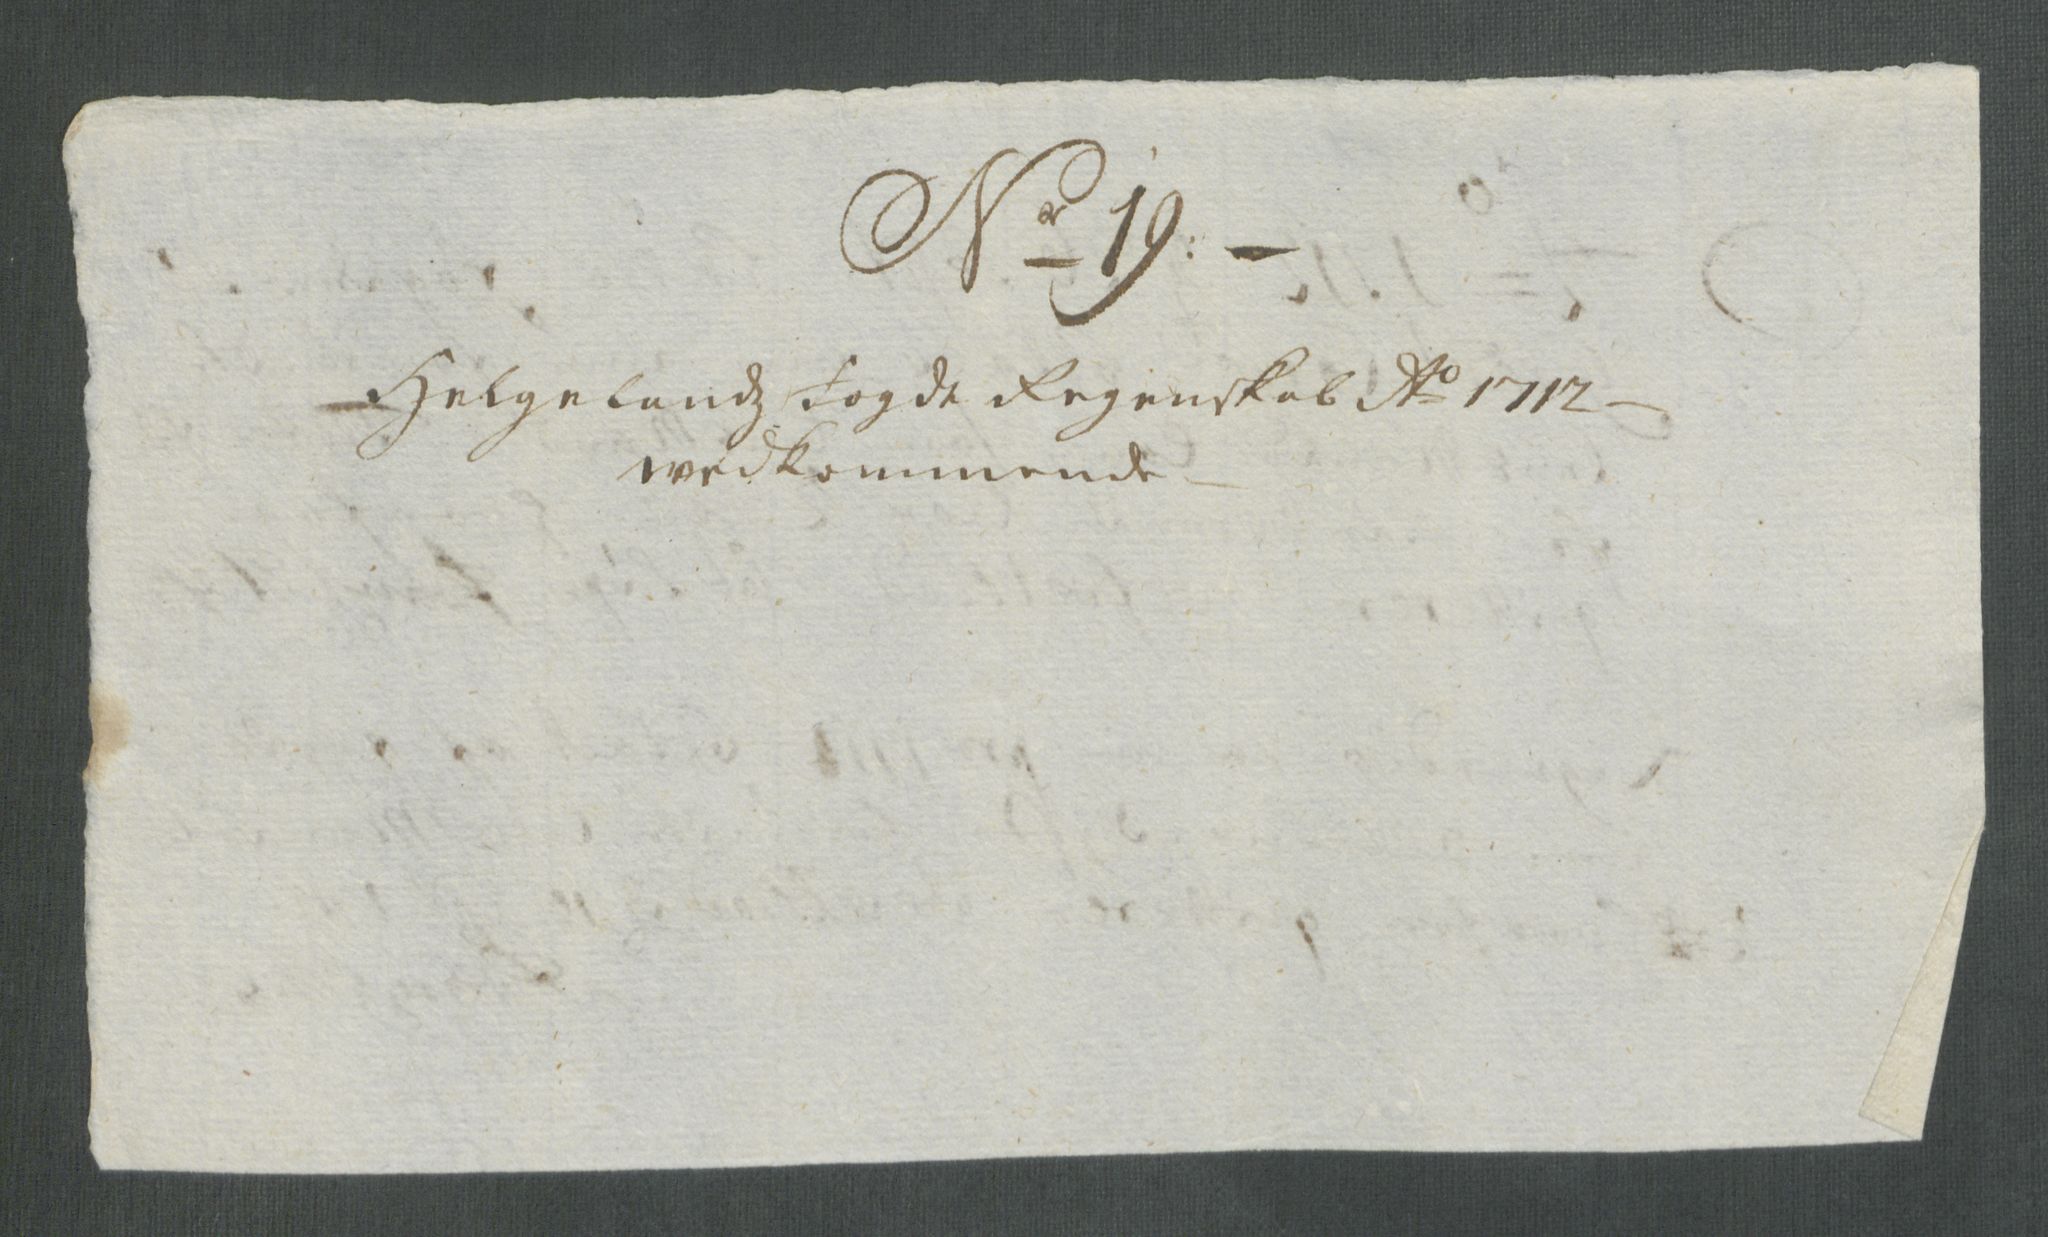 Nr 19: —
Helgelandz Fogde Regenskab Ao 1712 —
wedkommende —